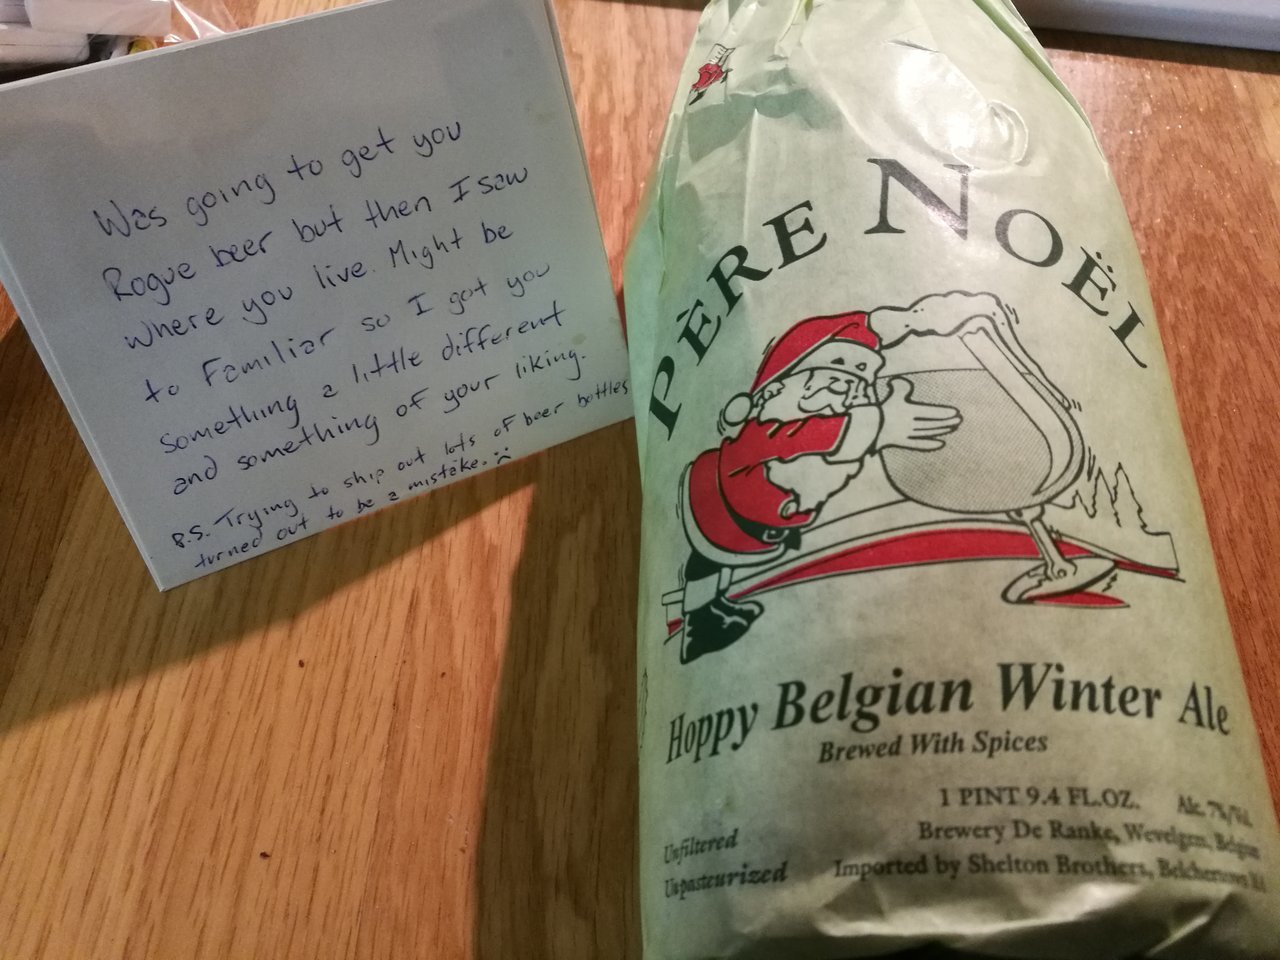 Was going to get you
Rogue beer but then I saw
where you live. Might be
to Familiar so I got you
something a little different
and something of your liking.
P.S. Trying to ship out lots of beer bottles
turned out to be a mistake. :(
PÈRE NOËL
Hoppy Belgian Winter Ale
Brewed With Spices
1 PINT 9.4 FL.OZ. Alc. 7%/Vol.
Unfiltered
Unpasteurized
Brewery De Ranke, Wevelgem, Belgium
Imported by Shelton Brothers, Belchertown MA